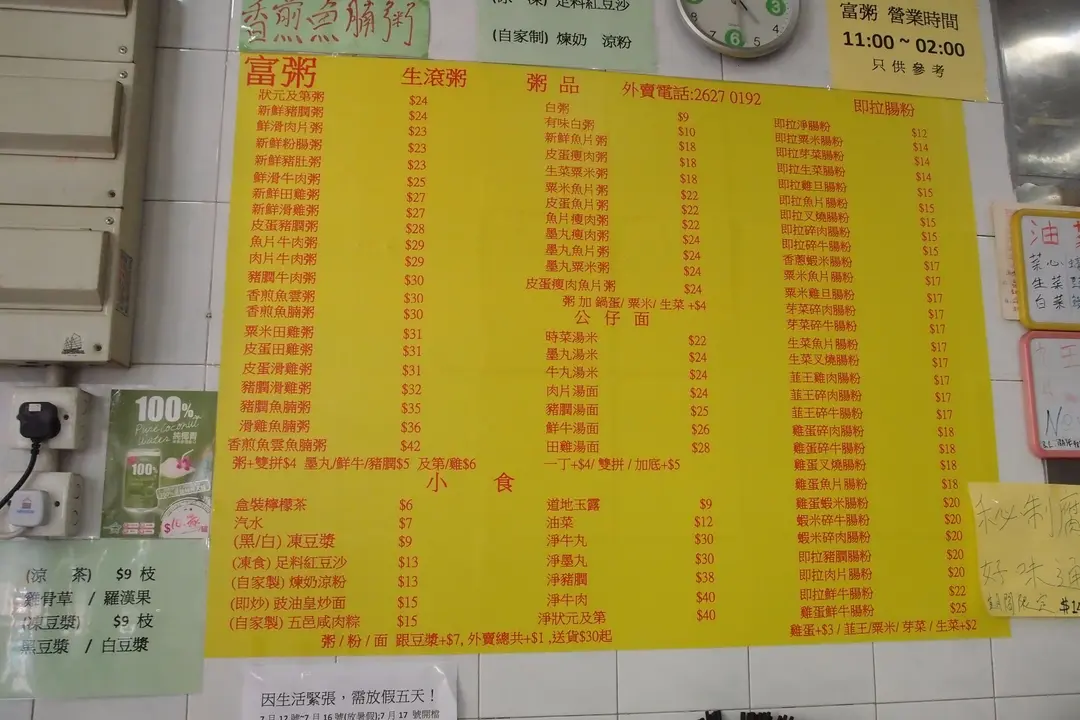 香煎魚腩粥
足料紅豆沙
(自家制) 煉奶 涼粉
8 7 6 5 4 3
富粥 營業時間
11:00 ~ 02:00
只供參考
富粥 生滾粥
狀元及第粥 $24
新鮮豬膶粥 $24
鮮滑肉片粥 $23
新鮮粉腸粥 $23
新鮮豬肚粥 $23
鮮滑牛肉粥 $25
新鮮田雞粥 $27
新鮮滑雞粥 $27
皮蛋豬膶粥 $28
魚片牛肉粥 $29
肉片牛肉粥 $29
豬膶牛肉粥 $30
香煎魚雲粥 $30
香煎魚腩粥 $30
粟米田雞粥 $31
皮蛋田雞粥 $31
皮蛋滑雞粥 $31
豬膶滑雞粥 $32
豬膶魚腩粥 $35
滑雞魚腩粥 $36
香煎魚雲魚腩粥 $42
粥+雙拼$4 墨丸/鮮牛/豬膶$5 及第/雞$6
粥 品 外賣電話:2627 0192
白粥 $9
有味白粥 $10
新鮮魚片粥 $18
皮蛋瘦肉粥 $18
生菜粟米粥 $18
粟米魚片粥 $22
皮蛋魚片粥 $22
魚片瘦肉粥 $22
墨丸瘦肉粥 $24
墨丸魚片粥 $24
墨丸粟米粥 $24
皮蛋瘦肉魚片粥 $24
粥 加 鍋蛋/ 粟米/ 生菜 +$4
公 仔 面
時菜湯米 $22
墨丸湯米 $24
牛丸湯米 $24
肉片湯面 $24
豬膶湯面 $25
鮮牛湯面 $26
田雞湯面 $28
一丁+$4/ 雙拼 / 加底+$5
即拉腸粉
即拉淨腸粉 $12
即拉粟米腸粉 $14
即拉芽菜腸粉 $14
即拉生菜腸粉 $14
即拉雞旦腸粉 $15
即拉魚片腸粉 $15
即拉叉燒腸粉 $15
即拉碎肉腸粉 $15
即拉碎牛腸粉 $15
香蔥蝦米腸粉 $17
粟米魚片腸粉 $17
粟米雞旦腸粉 $17
芽菜碎肉腸粉 $17
芽菜碎牛腸粉 $17
生菜魚片腸粉 $17
生菜叉燒腸粉 $17
韮王雞肉腸粉 $17
韮王碎肉腸粉 $17
韮王碎牛腸粉 $17
雞蛋碎肉腸粉 $18
雞蛋碎牛腸粉 $18
雞蛋叉燒腸粉 $18
雞蛋魚片腸粉 $18
雞蛋蝦米腸粉 $20
蝦米碎牛腸粉 $20
蝦米碎肉腸粉 $20
即拉豬膶腸粉 $20
即拉肉片腸粉 $20
即拉鮮牛腸粉 $22
雞蛋鮮牛腸粉 $25
雞蛋+$3 / 韮王/粟米/ 芽菜 / 生菜+$2
小 食
盒裝檸檬茶 $6
汽水 $7
(黑/白) 凍豆漿 $9
(凍食) 足料紅豆沙 $13
(自家製) 煉奶涼粉 $13
(即炒) 豉油皇炒面 $15
(自家製) 五邑咸肉粽 $15
道地玉露 $9
油菜 $12
淨牛丸 $30
淨墨丸 $30
淨豬膶 $38
淨牛肉 $40
淨狀元及第 $40
粥 / 粉 / 面 跟豆漿+$7, 外賣總共+$1 ,送貨$30起
100%
Pure Coconut Water
100%
(涼 茶) $9 枝
雞骨草 / 羅漢果
(凍豆漿) $9 枝
黑豆漿 / 白豆漿
因生活緊張，需放假五天！
7 月 12 號~7 月 16 號(放暑假);7 月 17 號開檔
油
菜心
生菜
白菜
秘制
好味
$14